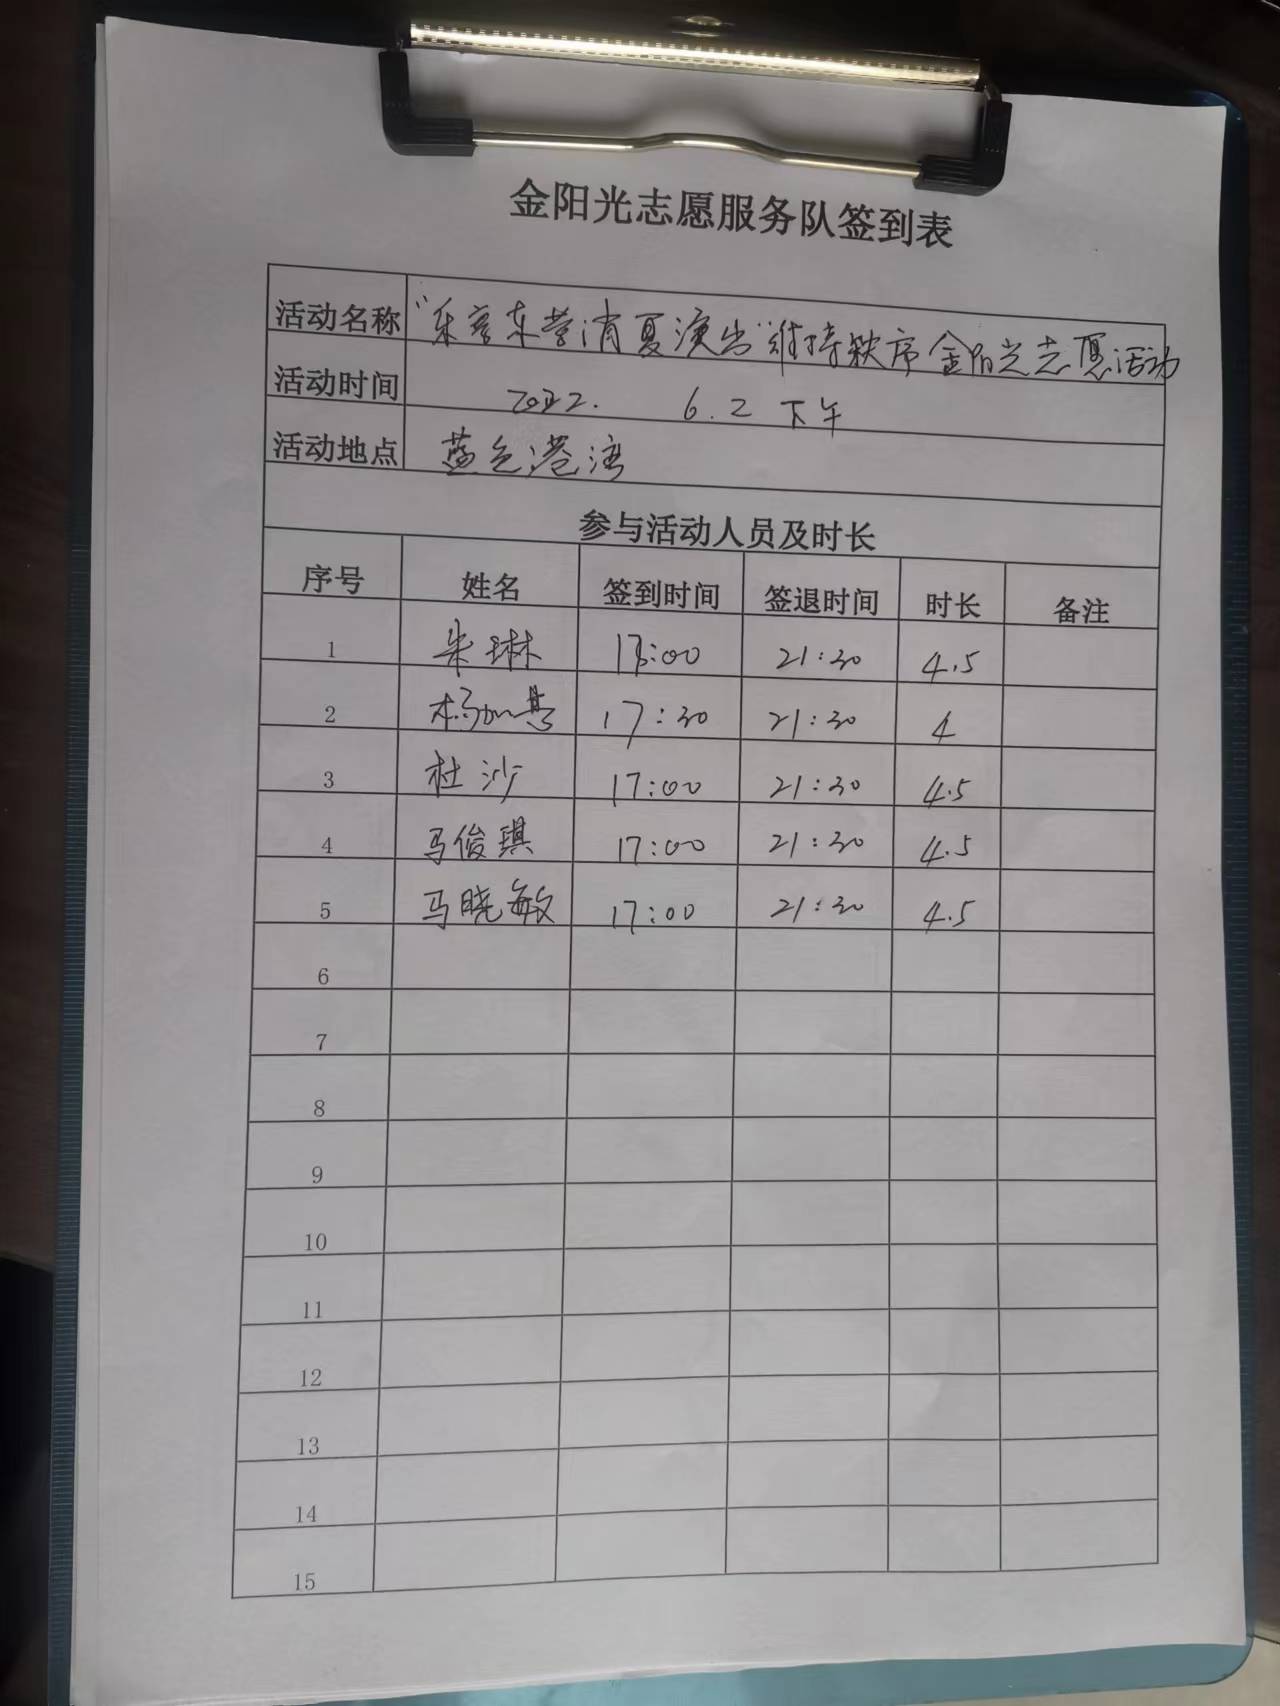 金阳光志愿服务队签到表
活动名称 “乐享东营消夏演出”维持秩序金阳光志愿活动
活动时间 2022. 6.2 下午
活动地点 蓝色港湾
参与活动人员及时长
序号 姓名 签到时间 签退时间 时长 备注
1 朱琳 17:00 21:30 4.5
2 17:30 21:30 4
3 杜沙 17:00 21:30 4.5
4 马俊琪 17:00 21:30 4.5
5 马晓敏 17:00 21:30 4.5
6
7
8
9
10
11
12
13
14
15